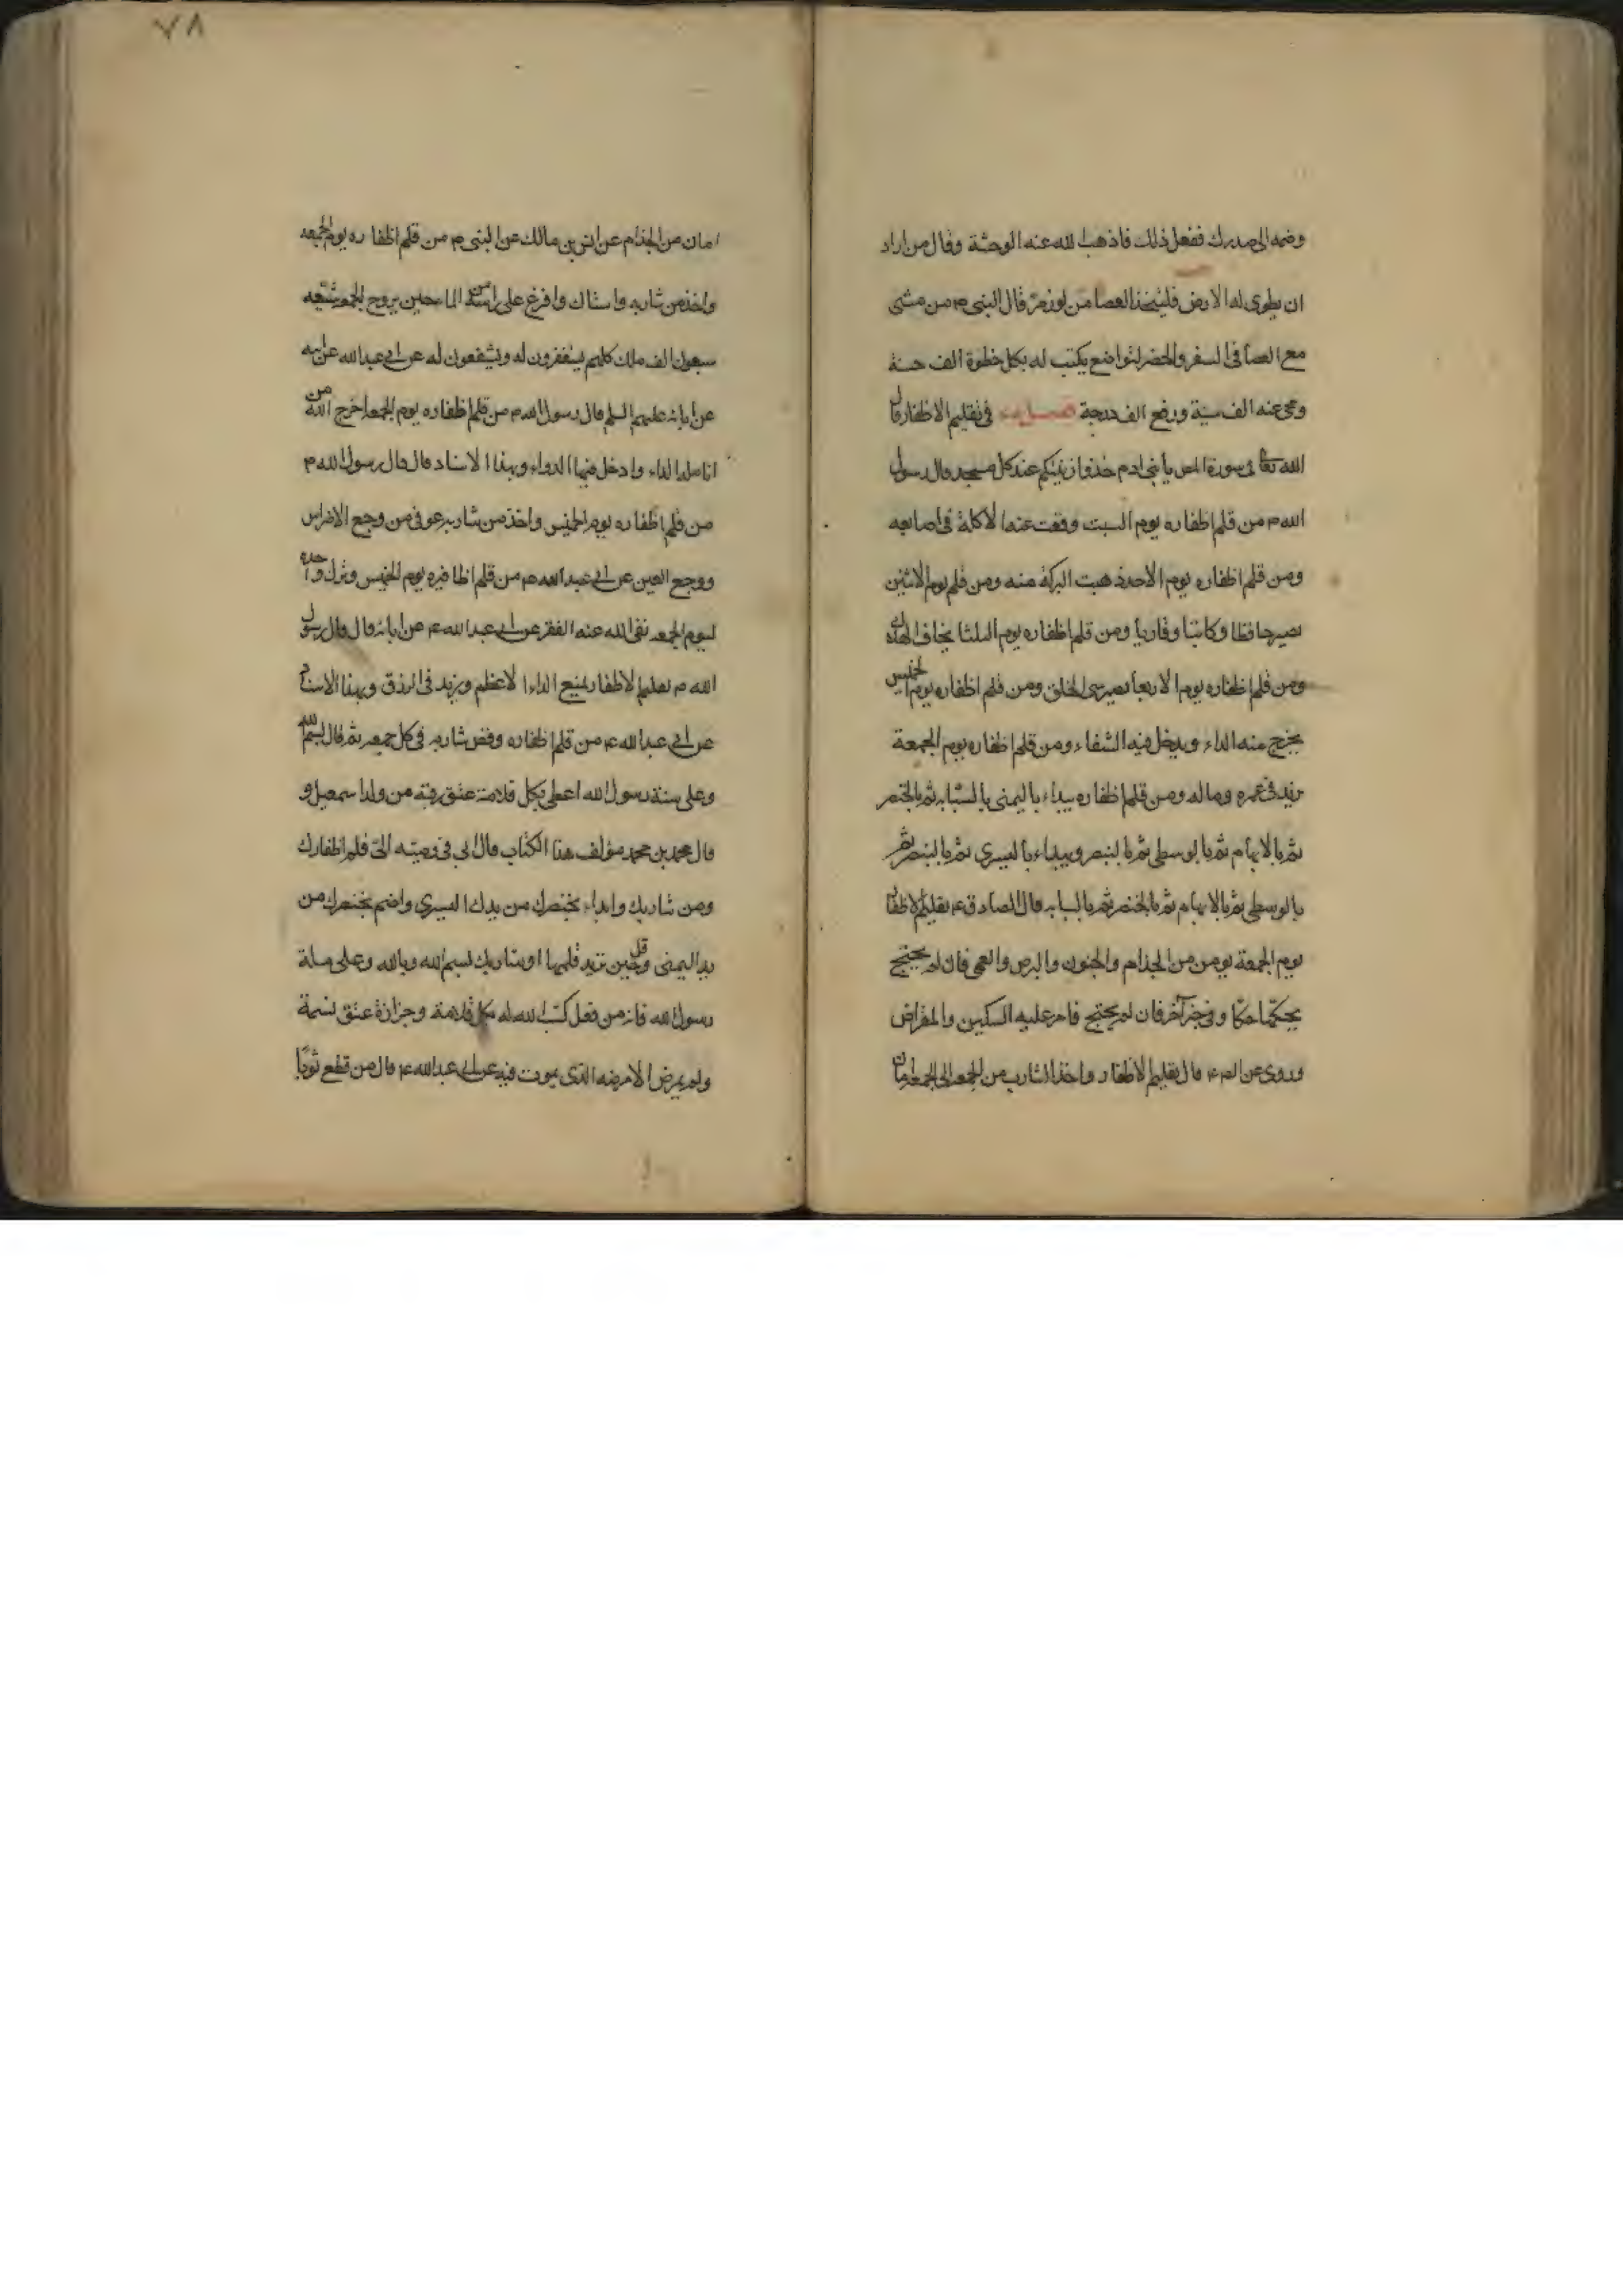 وضمه الى صدرك ففعل ذلك فاذهب الله عنه الوحشة وقال من اراد
ان يطوى له الارض فليتخذ العصا من لوز مر قال النبى م من مشى
مع العصا فى السفر والحضر لتواضع يكتب له بكل خطوة الف حسنة
ومحى عنه الف سيئة ورفع الف درجة فصل فى تقليم الاظفار قال
الله تعالى فى سورة المص يا بنى ادم خذوا زينتكم عند كل مسجد قال رسول
الله م من قلم اظفاره يوم السبت وقعت عنه الاكلة فى اصابعه
ومن قلم اظفاره يوم الاحد ذهبت البركة منه ومن قلم يوم الاثنين
يصير حافظا وكاتبا وقاريا ومن قلم اظفاره يوم الثلثا يخاف الهلاك
ومن قلم اظفاره يوم الاربعا يصير سئ الخلق ومن قلم اظفاره يوم الخميس
يخرج منه الداء ويدخل فيه الشفاء ومن قلم اظفاره يوم الجمعة
يزيد فى عمره وماله ومن قلم اظفاره يبداء باليمنى بالسبابه ثم بالخنصر
ثم بالابهام ثم بالوسطى ثم بالبنصر ويبداء باليسرى ثم بالبنصر ثم
بالوسطى ثم بالابهام ثم بالخنصر ثم بالسبابه قال الصادق ع تقليم الاظفار
يوم الجمعة يومن من الجذام والجنون والبرص والعمى فان لم يحتج
يحكها حكا وفى خبر آخر فان لم يحتج فامر عليه السكين والمقراض
وروى عن ع قال تقليم الاظفار واخذ الشارب من الجمعه الى الجمعه امان
٧٨
امان من الجذام عن انس بن مالك عن النبى م من قلم اظفاره يوم الجمعه
واخذ من شاربه واستاك وافرغ على راسه من الماء حين يروح للجمعه شيعه
سبعون الف ملك كلهم يستغفرون له ويشفعون له عن ابى عبد الله عن ابيه
عن ابائه عليهم السلم قال رسول الله م من قلم اظفاره يوم الجمعه اخرج الله من
انامله الداء وادخل فيها الدواء وبهذا الاسناد قال قال رسول الله م
من قلم اظفاره يوم الخميس واخذ من شاربه عوفى من وجع الاضراس
ووجع العين عن ابى عبد الله ع من قلم اظافيره يوم الخميس وترك واحدة
ليوم الجمعه نفى الله عنه الفقر عن ابى عبد الله ع عن ابائه قال قال رسول
الله م تقليم الاظفار يمنع الداء الاعظم ويزيد فى الرزق وبهذا الاسناد
عن ابى عبد الله ع من قلم اظفاره وقص شاربه فى كل جمعه ثم قال بسم الله
وعلى سنة رسول الله اعطى بكل قلامة عتق رقبة من ولد اسمعيل و
قال محمد بن محمد مؤلف هذا الكتاب قال ابى فى وصيته الى قلم اظفارك
ومن شاربك وابداء بخنصرك من يدك اليسرى واختم بخنصرك من
يد اليمنى وقل حين تريد قلمها او شاربك بسم الله وبالله وعلى ملة
رسول الله فانه من فعل كتب الله له بكل قلامة وجزازة عتق نسمة
ولم يمرض الا مرضه الذى يموت فيه عن ابى عبد الله ع قال من قطع ثوبا